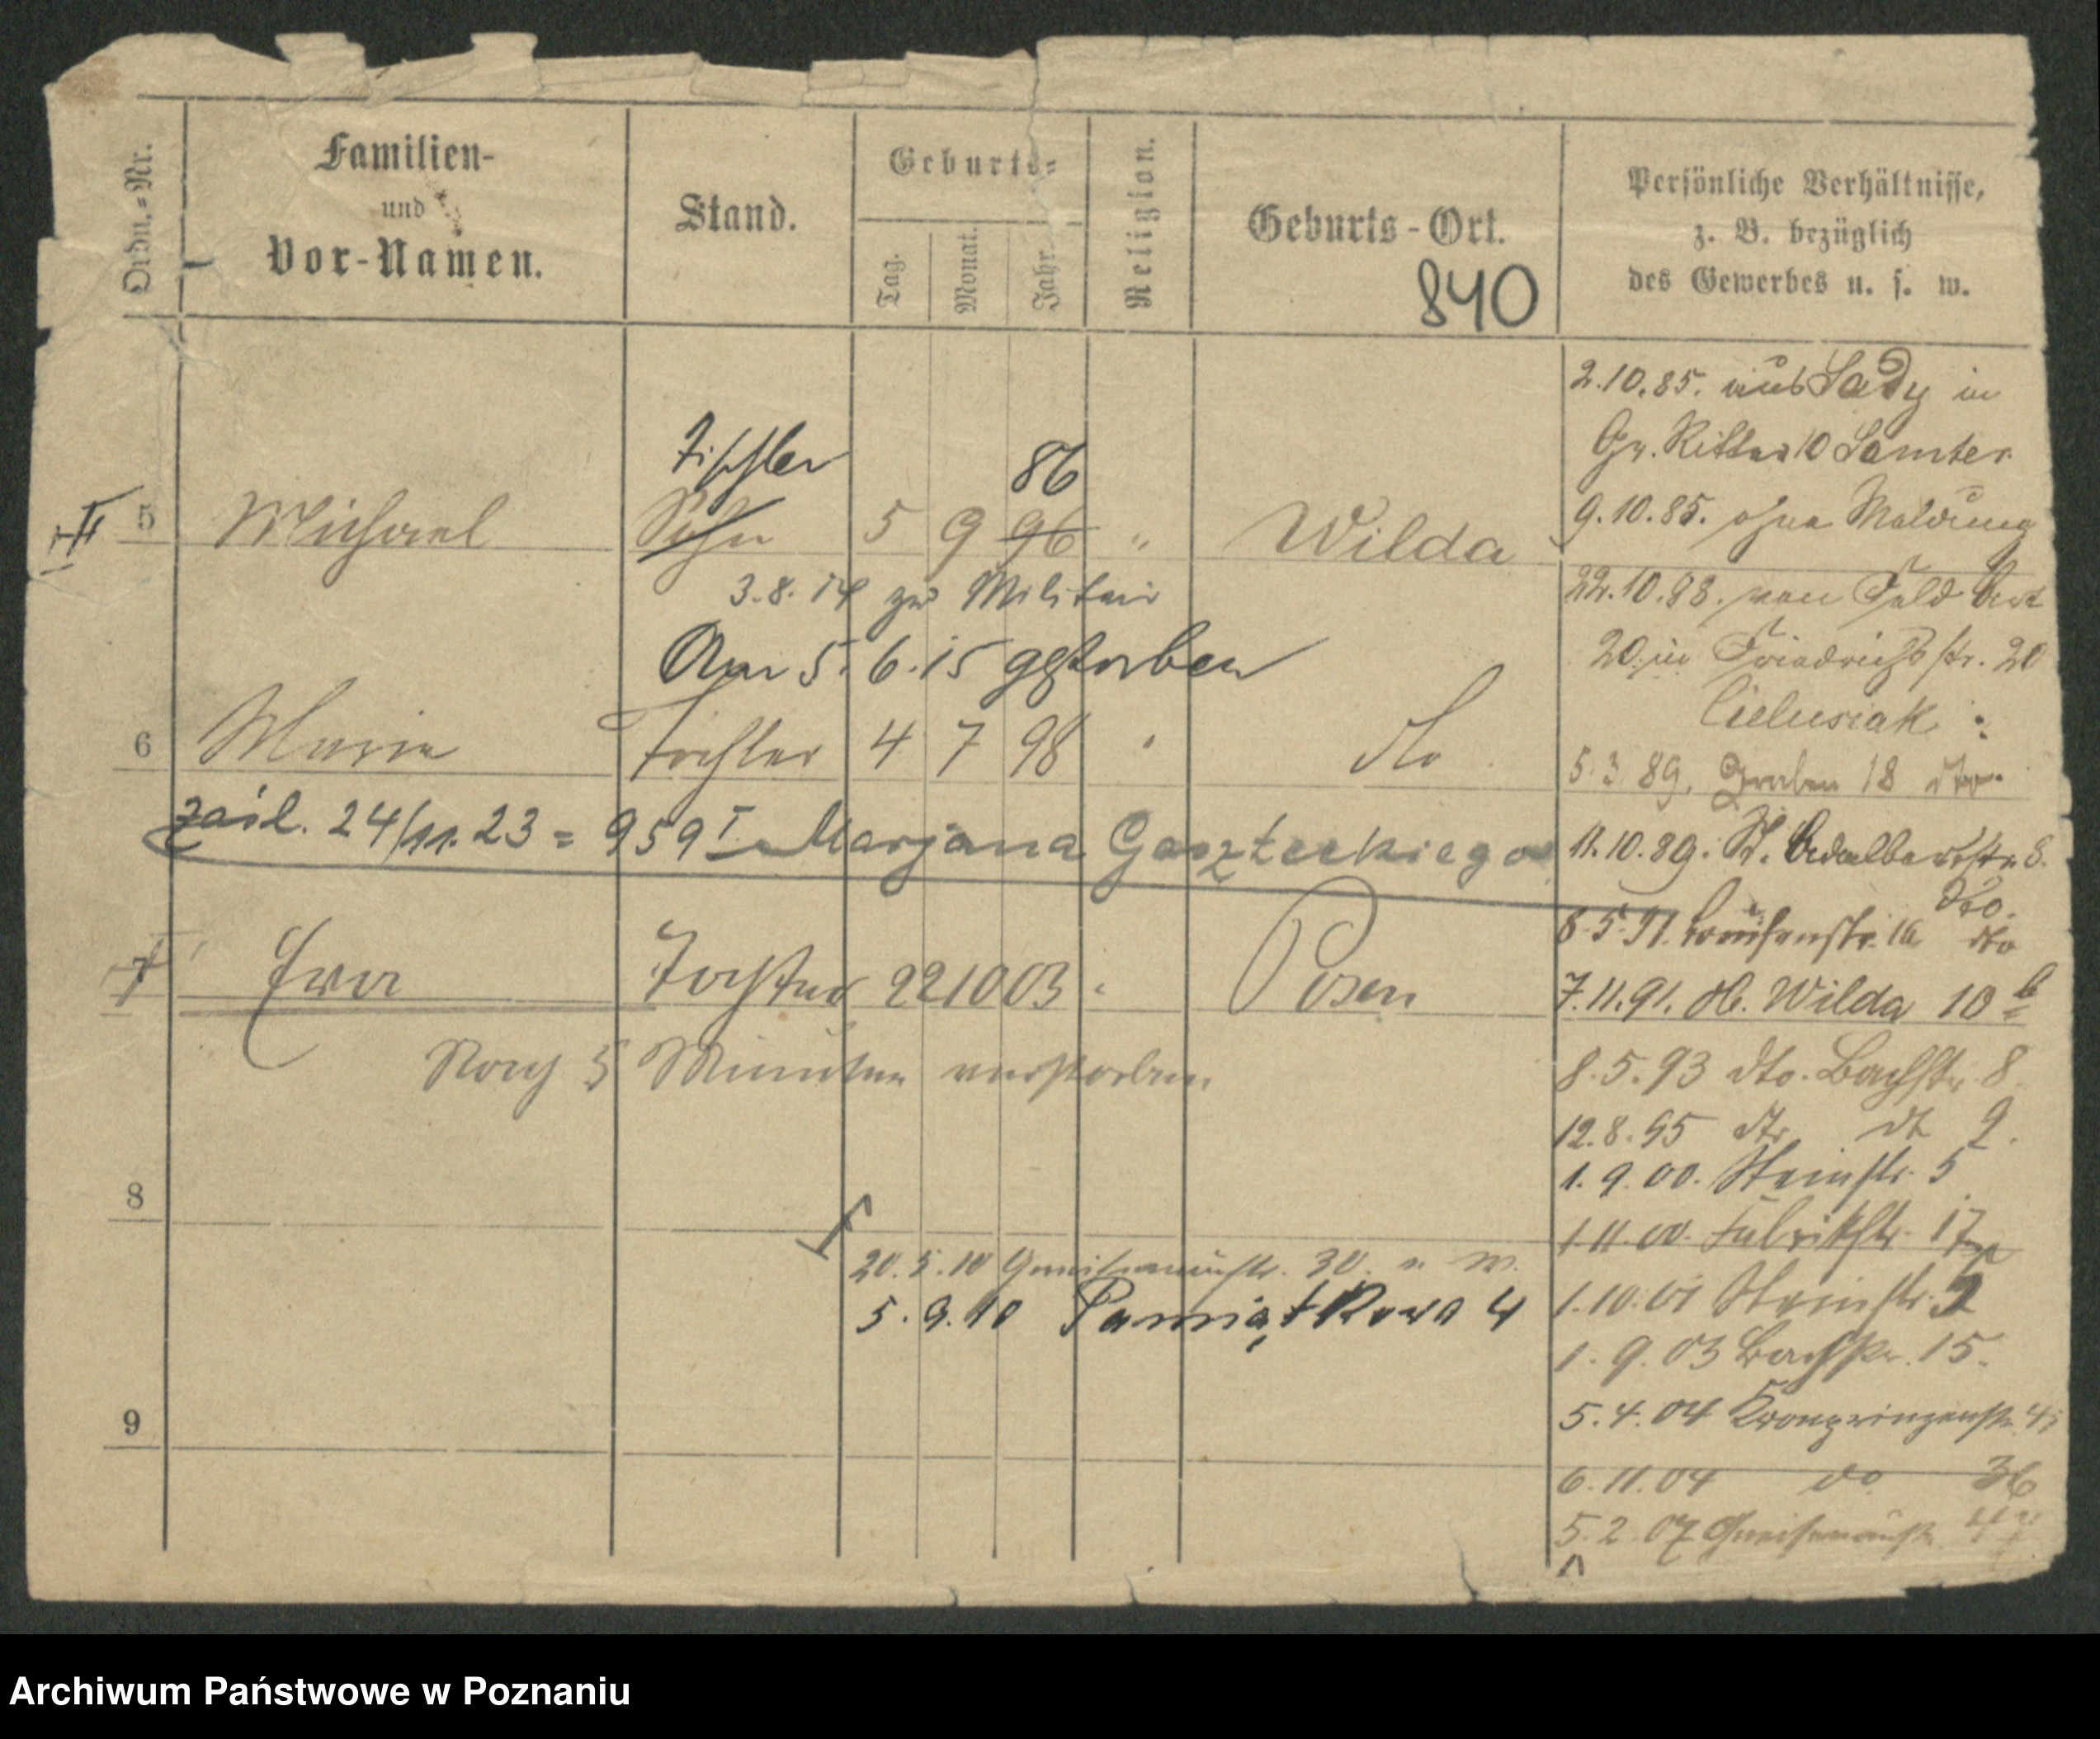 Ordn.-Nr.
Familien-
und
Vor-Namen.
Stand.
Geburts-
Tag.
Monat.
Jahr.
Religion.
Geburts-Ort.
840
Persönliche Verhältnisse,
z. B. bezüglich
des Gewerbes u. s. w.
Tischler 86
II 5 Michael Sohn 5 9 96 " Wilda
3.8.14 zum Militair
Am 5.6.15 gestorben
6 Marie Tochter 4 7 98 " dto
zaśl. 24/11.23 = 959 I Marjana Gaszteckiego
7 Ewa Tochter 22 10 03 " Posen
Nach 5 Minuten verstorben
8
20.5.10 Gneisenaustr. 30 n W.
5.9.10 Pamiątkowa 4
9
2.10.85. aus Sady in
Gr. Ritter 10 Samter
9.10.85. ohne Meldung
22.10.88. von Feld
20 in Friedrichstr. 20
Cielusiak
5.3 89. Graben 18 dto.
11.10.89. St. Adalbertstr. 8.
dto.
8.5.91. Louisenstr. 16 dto
7.11.91. Ob. Wilda 10 b
8.5.93 dto. Bachstr. 8
12.8.95 dto dt 9.
1.9.00. Steinstr. 5
1.11.00. Fabrikstr. 17
1.10.01 Steinstr. 2
1.9.03 Bachstr. 15.
5.4.04 Kronprinzenstr.
6.11.04 do 36
5.2.07 Gneisenaustr.
Archiwum Państwowe w Poznaniu